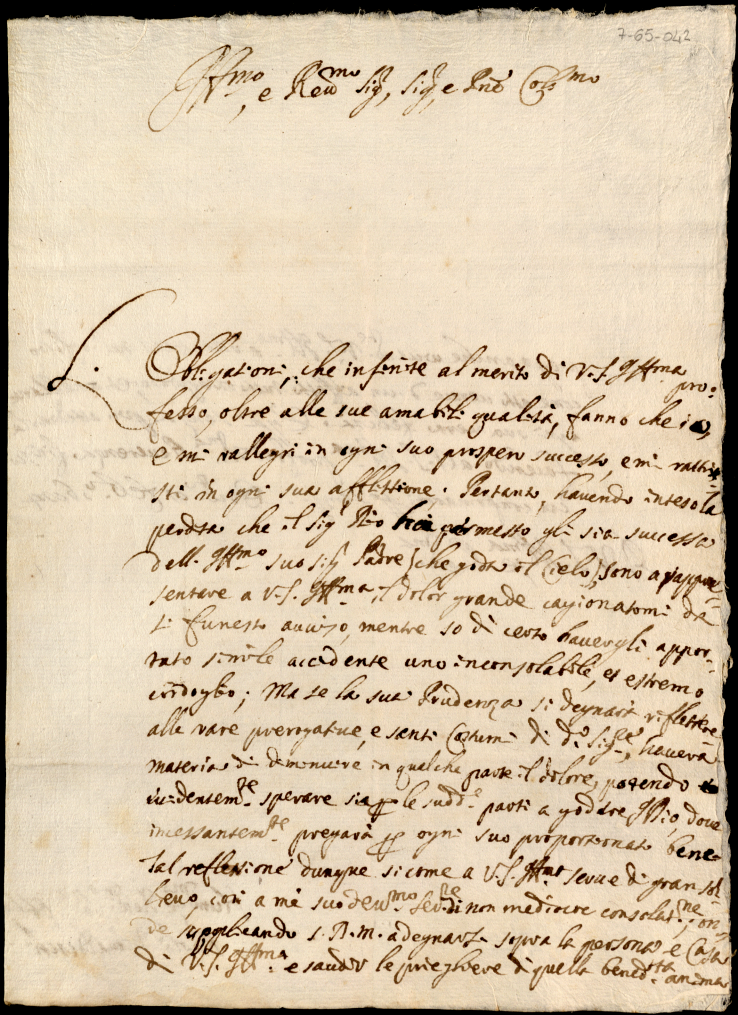 7-65-042
Ill.mo, e Reu.mo Sig.r, Sig.r, e Prõe Col.mo
L'Obligationi, che infinite al merito di V.S. Ill.ma pro:
fesso, oltre alle sue amabili qualità, fanno che io,
e mi rallegri in ogni suo prospero successo, e mi rattri
sti in ogni sua afflittione. Pertanto, hauendo inteso la
perdita che il Sig.r Iddio hà permesso gli sia successa
dell' Ill.mo suo Sig.r Padre (che goda il Cielo) sono a rappre
sentare a V.S. Ill.ma il dolor grande cagionatomi da
sì funesto auuiso, mentre so di certo hauergli appor-
tato simile accidente uno inconsolabile, et estremo
cordoglio; Ma se la sua Prudenza si degnarà riflettere
alle rare prerogatiue, e santi Costumi di d.o Sig.re, hauerà
materia di diminuire in qualche parte il dolore, potendo
euidentem.te sperare sia p le sudd.e parti a godere Iddio, doue
incessantem.te pregarà p ogni suo proportionato bene.
Tal reflessione dunque si come a V.S. Ill.ma serue di gran sol
lieuo, così a me suo deu.mo Ser.re di non mediocre consolat.ne, on
de supplicando S.D.M. a degnarsi sopra la persona e Casa
di V.S. Ill.ma esaudir le preghiere di quella bened.ta anima